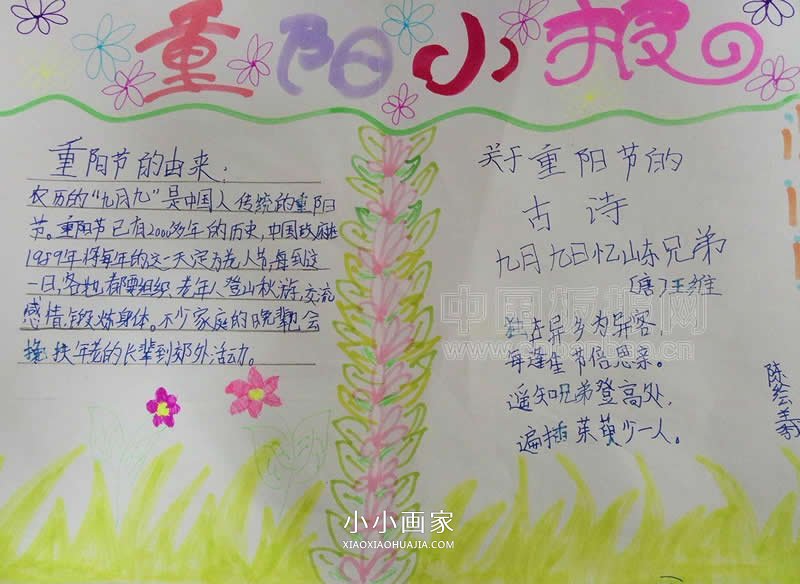 重阳小报
重阳节的由来:
农历的“九月九”是中国人传统的重阳
节。重阳节已有2000多年的历史,中国政府在
1989年将每年的这一天定为老人节,每到这
一日,各地都要组织老年人登山秋游,交流
感情,锻炼身体。不少家庭的晚辈也会
搀扶年老的长辈到郊外活动。
关于重阳节的
古诗
九月九日忆山东兄弟
[唐]王维
独在异乡为异客,
每逢佳节倍思亲。
遥知兄弟登高处,
遍插茱萸少一人。
中国板报网
小小画家
XIAOXIAOHUAJIA.COM